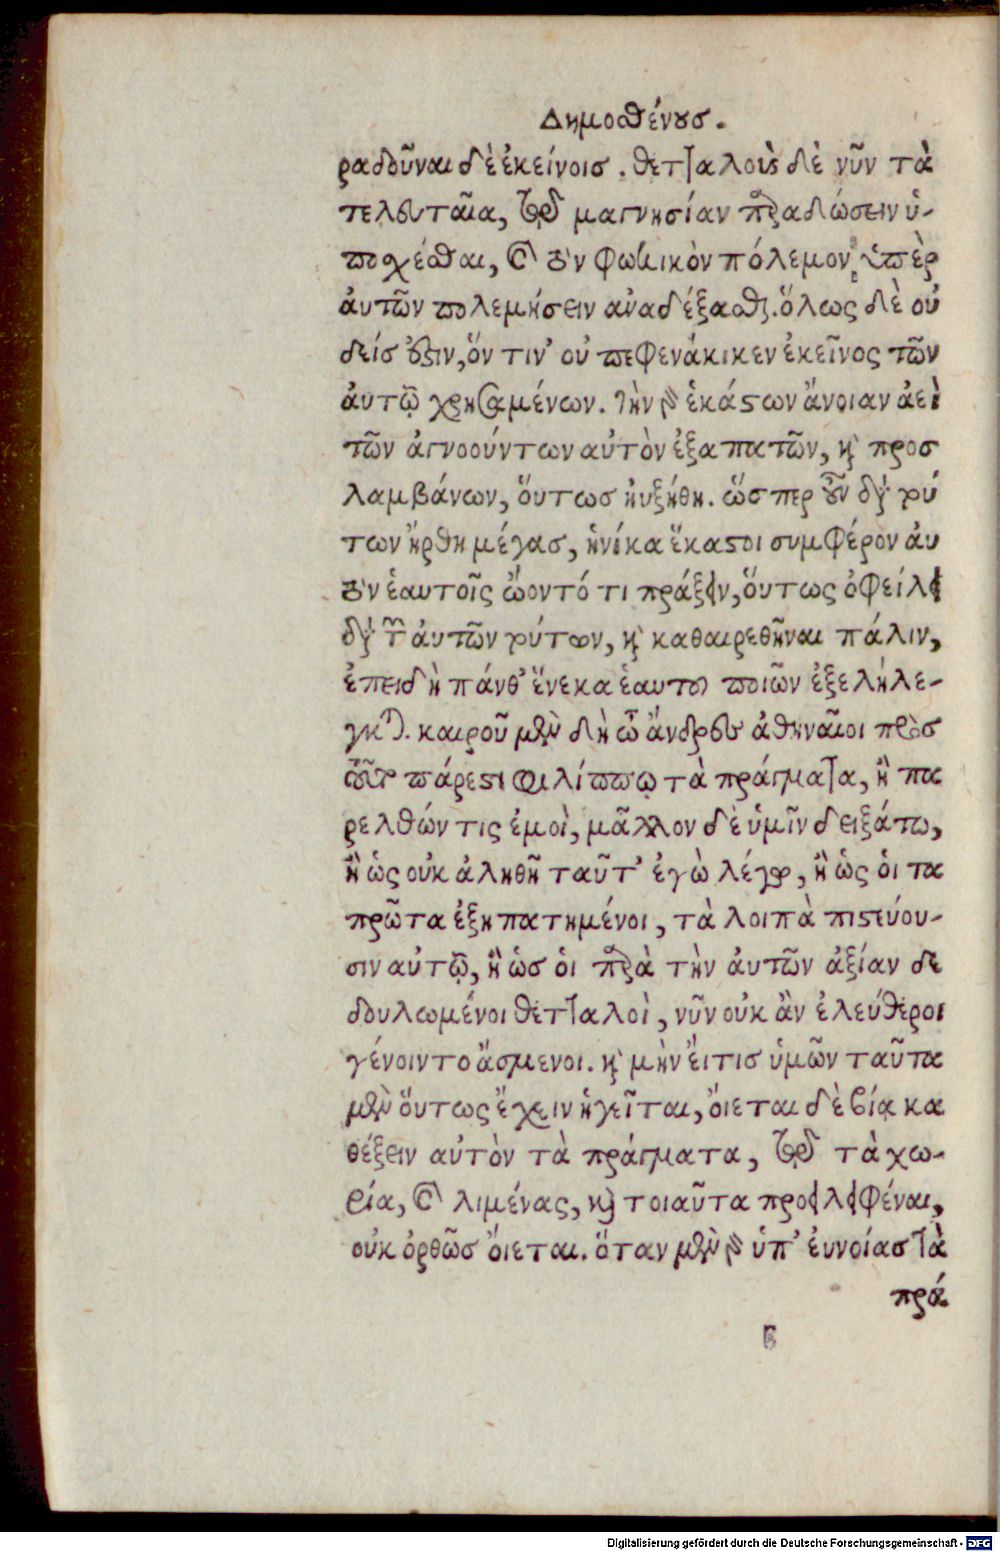 Δημοσθένους.
ραδοῦναι δὲ ἐκείνοις . θετταλοὺς δὲ νῦν τὰ
τελευταῖα, τῷ μαγνησίαν παραδώσειν ὑ-
ποσχέσθαι, καὶ τὸν φωκικὸν πόλεμον ὑπὲρ
ἀυτῶν πολεμήσειν ἀναδέξασθαι. ὅλως δὲ οὐ
δείς ἐστιν, ὅν τιν' οὐ πεφενάκικεν ἐκεῖνος τῶν
ἀυτῷ χρησαμένων. τὴν γὰρ ἑκάστων ἄνοιαν ἀεὶ
τῶν ἀγνοούντων αὐτὸν ἐξαπατῶν, καὶ προσ
λαμβάνων, ὅυτως ηυξήθη. ὥσπερ οὖν διὰ τού
των ἤρθη μέγας, ἡνίκα ἕκαστοι συμφέρον ἀυ
τὸν ἑαυτοῖς ὤοντό τι πράξειν, ὅυτως ὀφείλει
διὰ τῶν ἀυτῶν τούτων, καὶ καθαιρεθῆναι πάλιν,
ἐπειδὴ πάνθ' ἕνεκα ἑαυτοῦ ποιῶν ἐξελήλε-
γκται. καιροῦ μὲν δὴ ὦ ἄνδρες ἀθηναῖοι πρὸς
τοῦτο πάρεστι φιλίππῳ τὰ πράγματα, ἢ πα
ρελθών τις ἐμοὶ, μᾶλλον δὲ ὑμῖν δειξάτω,
ἢ ὡς οὐκ ἀληθῆ ταῦτ' ἐγὼ λέγω, ἢ ὡς ὁι τα
πρῶτα ἐξηπατημένοι, τὰ λοιπὰ πιστεύου-
σιν αὐτῷ, ἢ ὡς ὁι παρὰ τὴν ἀυτῶν ἀξίαν δε
δουλωμένοι θετταλοὶ, νῦν οὐκ ἂν ἐλεύθεροι
γένοιντο ἄσμενοι. καὶ μὴν ἔι τις ὑμῶν ταῦτα
μὲν ὅυτως ἔχειν ἡγεῖται, ὄιεται δὲ βίᾳ κα
θέξειν αὐτὸν τὰ πράγματα, τῷ τὰ χω-
ρία, καὶ λιμένας, καὶ τοιαῦτα προειλειφέναι,
οὐκ ὀρθῶς ὄιεται. ὅταν μὲν γὰρ ὑπ' ἐυνοίας τὰ
πρά
Digitalisierung gefördert durch die Deutsche Forschungsgemeinschaft - DFG